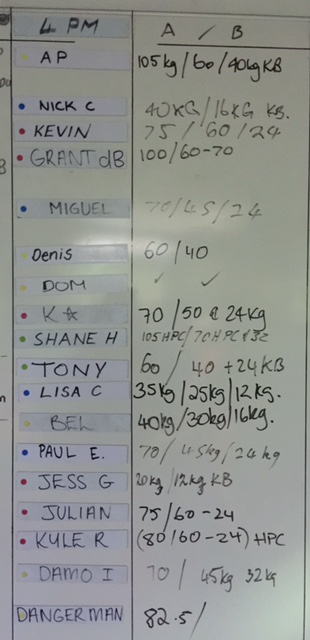 4 PM A / B
AP 105kg/60/40kgKB
NICK C 40KG/16KG KB.
KEVIN 75 / 60 / 24
GRANT dB 100/60-70
MIGUEL 70/45/24
Denis 60/40
DOM ✓ ✓
K☆ 70/50 @ 24kg
SHANE H 105HPC/70HPC+32
TONY 60/ 40 +24KB
LISA C 35kg/25kg/12kg.
BEL 40kg/30kg/16kg.
PAUL E. 70/45kg/24kg
JESS G 20kg/12kg KB
JULIAN 75/60-24
KYLE R (80/60-24) HPC
DAMO I 70 / 45kg 32kg
DANGERMAN 82.5/